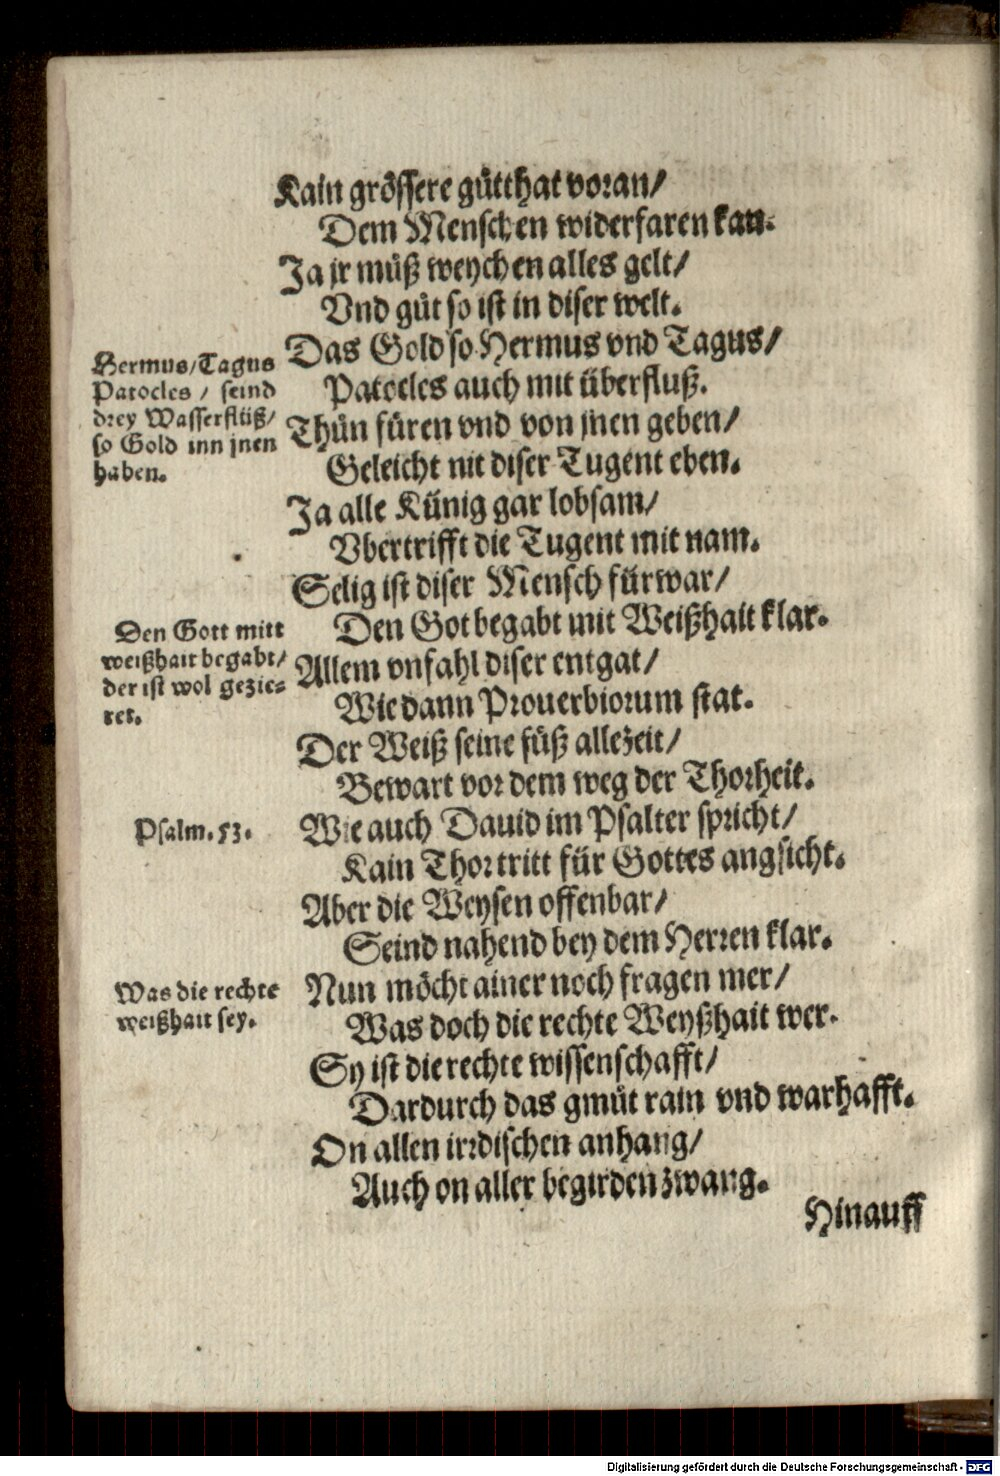 Kain grössere gůtthat voran/
Dem Menschen widerfaren kan.
Ja jr můß weychen alles gelt/
Vnd gůt so ist in diser welt.
Das Gold so Hermus vnd Tagus/
Patocles auch mit überfluß.
Thůn füren vnd von jnen geben/
Geleicht nit diser Tugent eben.
Ja alle Künig gar lobsam/
Vbertrifft die Tugent mit nam.
Selig ist diser Mensch fürwar/
Den Got begabt mit Weißhait klar.
Allem vnfahl diser entgat/
Wie dann Prouerbiorum stat.
Der Weiß seine füß allezeit/
Bewart vor dem weg der Thorheit.
Wie auch Dauid im Psalter spricht/
Kain Thor tritt für Gottes angsicht.
Aber die Weysen offenbar/
Seind nahend bey dem Herren klar.
Nun möcht ainer noch fragen mer/
Was doch die rechte Weyßhait wer.
Sy ist die rechte wissenschafft/
Dardurch das gmüt rain vnd warhafft.
On allen irrdischen anhang/
Auch on aller begirden zwang.
Hinauff
Hermus/Tagus
Patocles / seind
drey Wasserflüß/
so Gold inn jnen
haben.
Den Gott mitt
weißhait begabt/
der ist wol gezie-
ret.
Psalm. 53.
Was die rechte
weißhait sey.
Digitalisierung gefördert durch die Deutsche Forschungsgemeinschaft - DFG